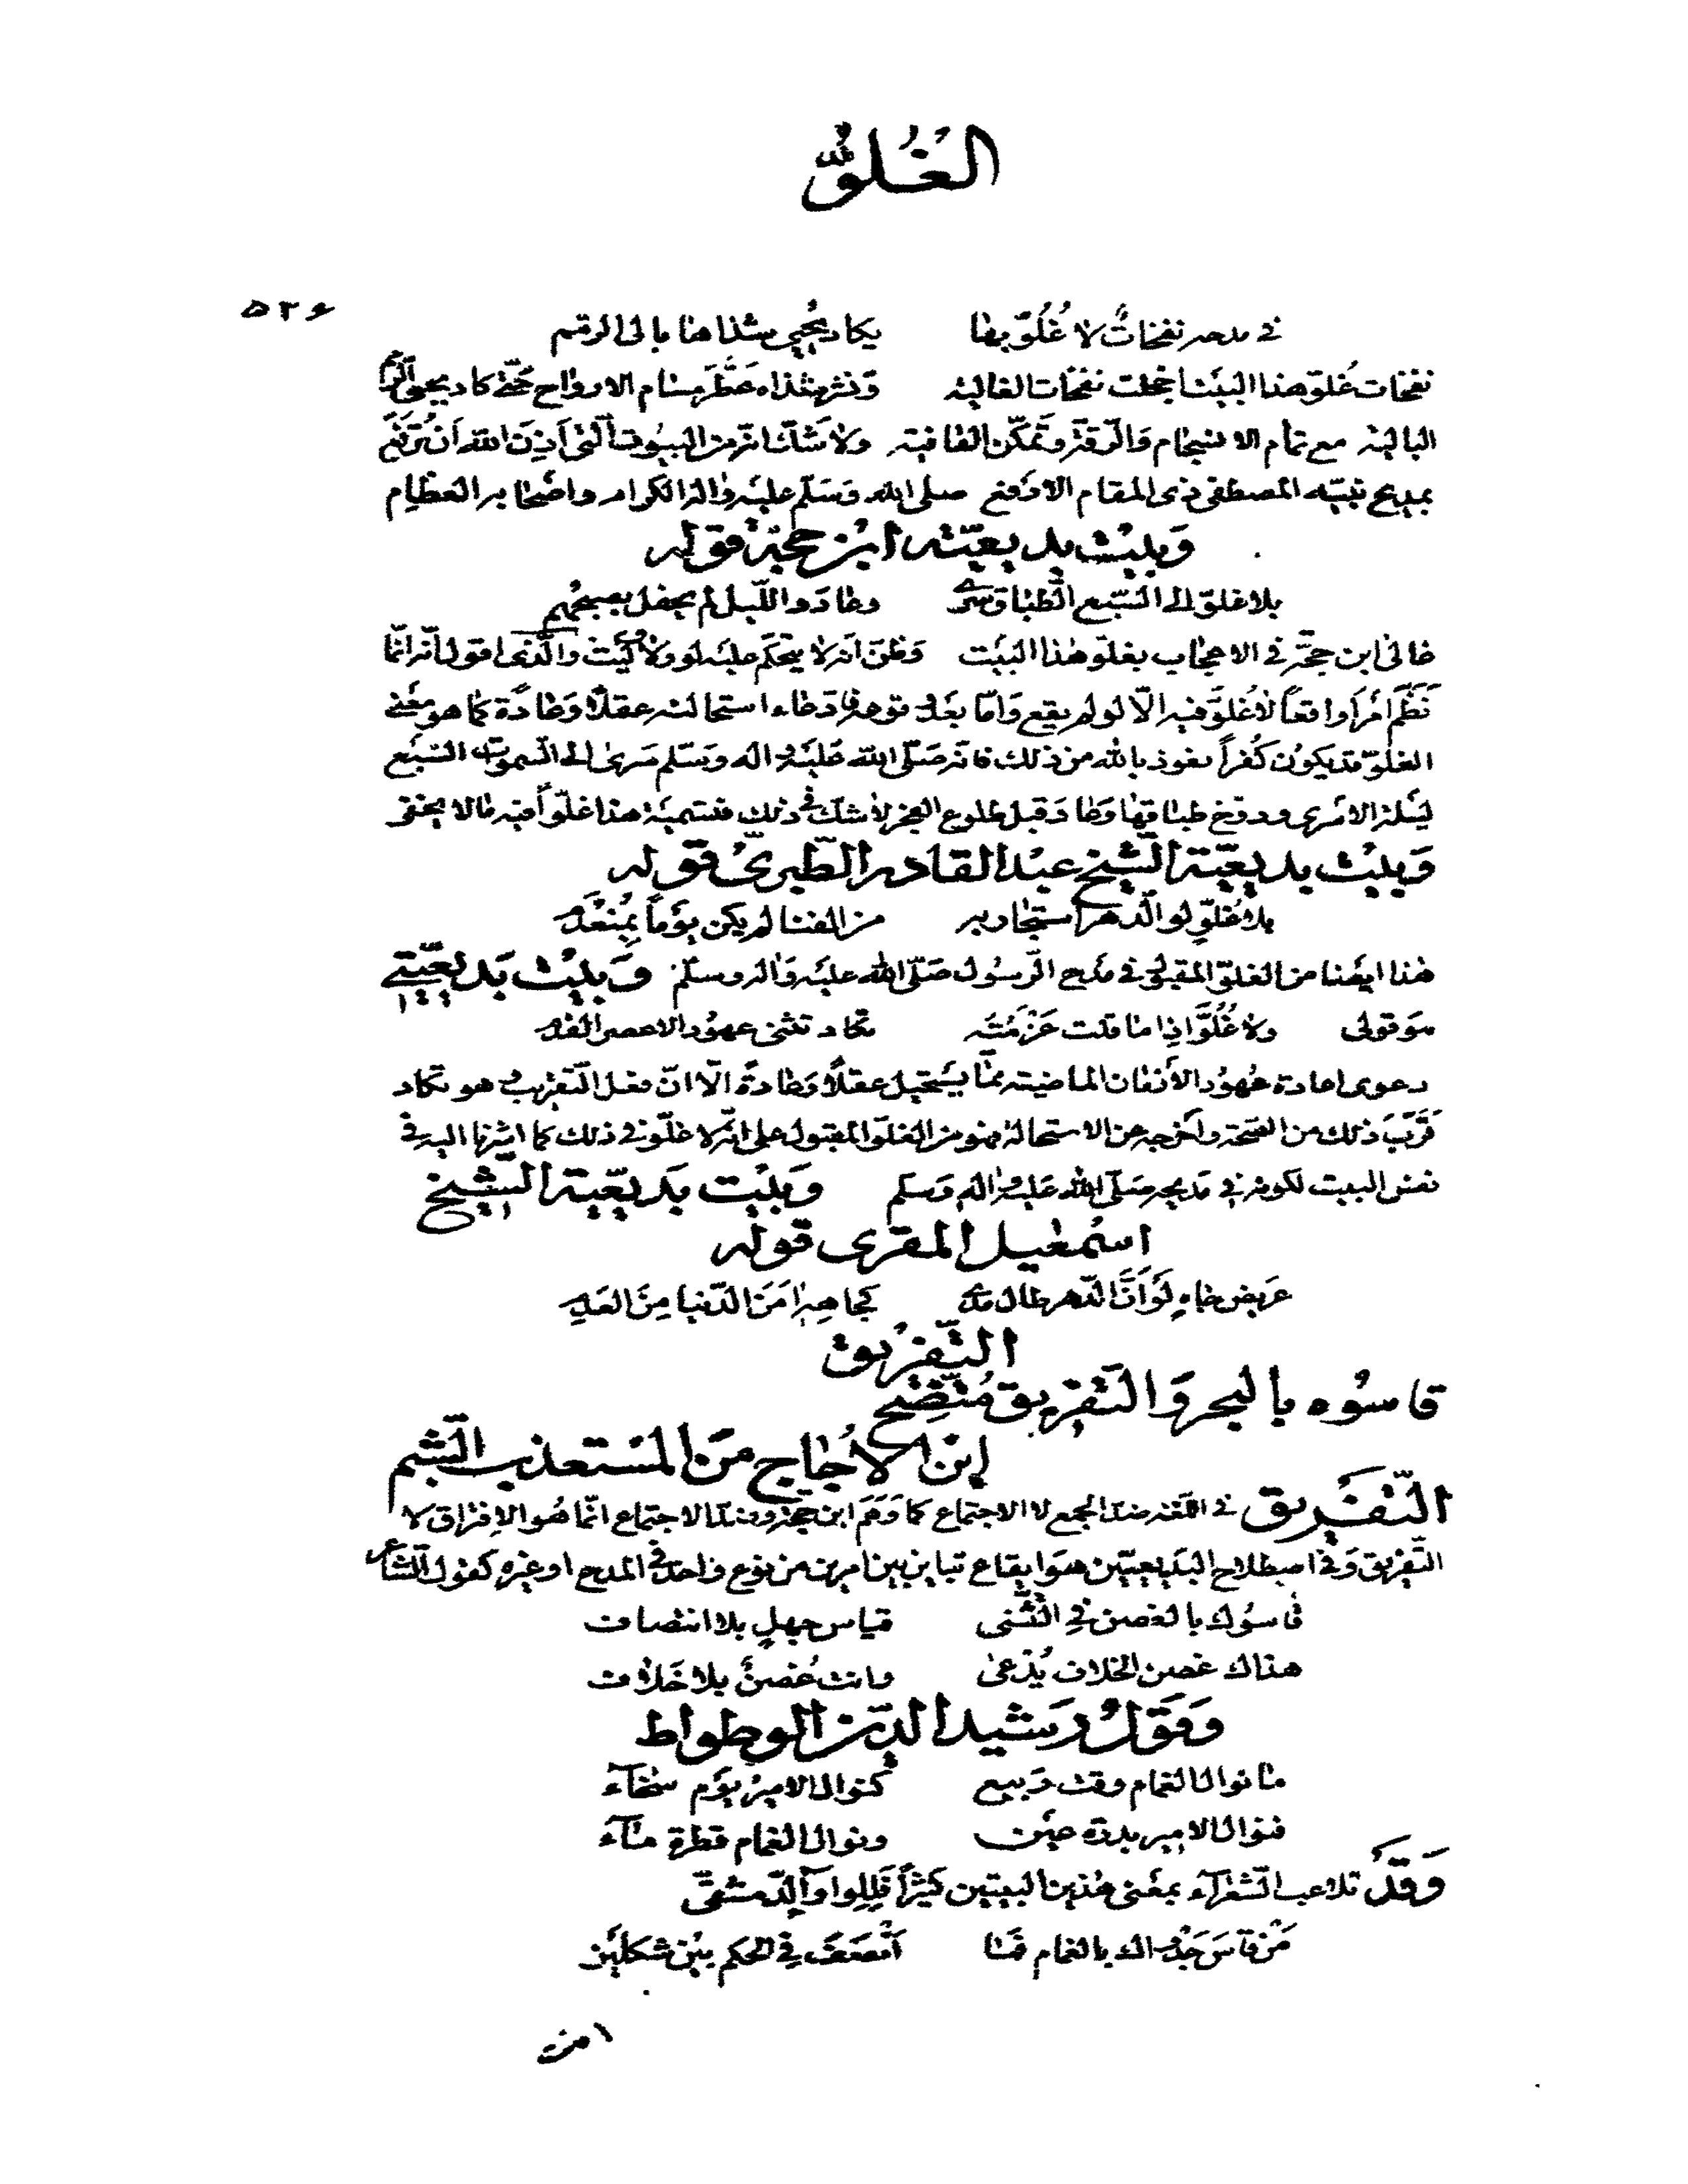 الغُلوّ
۵۲۶
في مدحه نفحاتٌ لا غُلُوّ بها يكاد يُحيي شذاها بالي الرمم
نفحات غلوّ هذا البيت اخجلت نفحات الغالية ونشر شذاه عطّر مشام الارواح حتّى كاد يحيى الرمم
البالية مع تمام الانسجام والرقّة وتمكّن القافية ولا شكّ انّه من البيوت الّتي اَذِنَ الله اَن تُرْفَع
بمديح نبيّه المصطفى ذى المقام الارفع صلى الله وسلّم عليه واله الكرام واصحابه العظام
وبيت بديعيّة ابن حجّة قوله
بلا غلوّ الى السّبع الطّباق سرى وعاد واللّيل لم يجفل بصبحهم
غالى ابن حجّة في الاعجاب بغلوّ هذا البيت وظنّ انه لا يتحكّم عليه لو ولا ليت والّذى اقول انّه انّما
نَظَمَ أمراً واقعاً لا غُلوّ فيه الّا لو لم يقع وامّا بعد وقوعه فادّعاء استحالته عقلاً وعادة كما هو معنى
الغلوّ قد يكون كُفراً نعوذ بالله من ذلك فانّه صلّى الله عليه واله وسلّم سرى الى السّموات السّبع
ليلة الاسرى ودخ طباقها وعاد قبل طلوع الفجر لا شكّ في ذلك فتسمية هذا غلوّاً فيه ما لا يخفى
وبيت بديعيّة الشّيخ عبد القادر الطّبريّ قوله
بلا غُلوٍّ لو الدّهر استجار به من الفنا لم يكن يوماً بمُنعدم
هذا ايضا من الغلوّ المقبول في مدح الرّسول صلّى الله عليه واله وسلّم وبيت بديعيّتي
هو قولى ولا غُلُوَّ اذا ما قلت عَزْمَتُه تكاد تثنى عهود الاعصر القدم
دعوى اعادة عهود الأزمان الماضية ممّا يستحيل عقلاً وعادةً الّا انّ فعل التّقريب وهو تكاد
قَرَّبَ ذلك من الصّحّة واخرجه عن الاستحالة فهو من الغلوّ المقبول على انّه لا غلوّ في ذلك كما اشرنا اليه في
نفس البيت لكونه في مديحه صلّى الله عليه واله وسلم وبيت بديعيّة الشّيخ
اسمعيل المقرى قوله
عريض جاهٍ لَو اَنَّ الدّهر طال مدى كجاهه اَمن الدّنيا مِن العدم
التّفريق
قاسوه بالبحر والتّفريق مُتّضِح
اين الاُجاج من المستعذب الشّبم
التّفريق في اللّغة ضدّ الجمع لا الاجتماع كما وَهَمَ ابن حجّة وضدّ الاجتماع انّما هو الافتراق لا
التّفريق وفى اصطلاح البديعيّين هو ايقاع تباين بين امرين من نوع واحد في المدح او غيره كقول الشّاعر
قاسوك بالغصن في التّثنى قياس جهلٍ بلا انتصاف
هذاك غصن الخلاف يُدعى وانت غُصنٌ بلا خلاف
وقول رشيد الدّين الوطواط
ما نوال الغمام وقت ربيع كنوال الامير يوم سخآء
فنوال الامير بدرة عين ونوال الغمام قطرة مآء
وقد تلاعب الشّعرآء بمعنى هذين البيتين كثيراً فللوأوآء الدّمشقى
من قاس جدواك بالغمام فما انصف في الحكم بين شكلين
انت